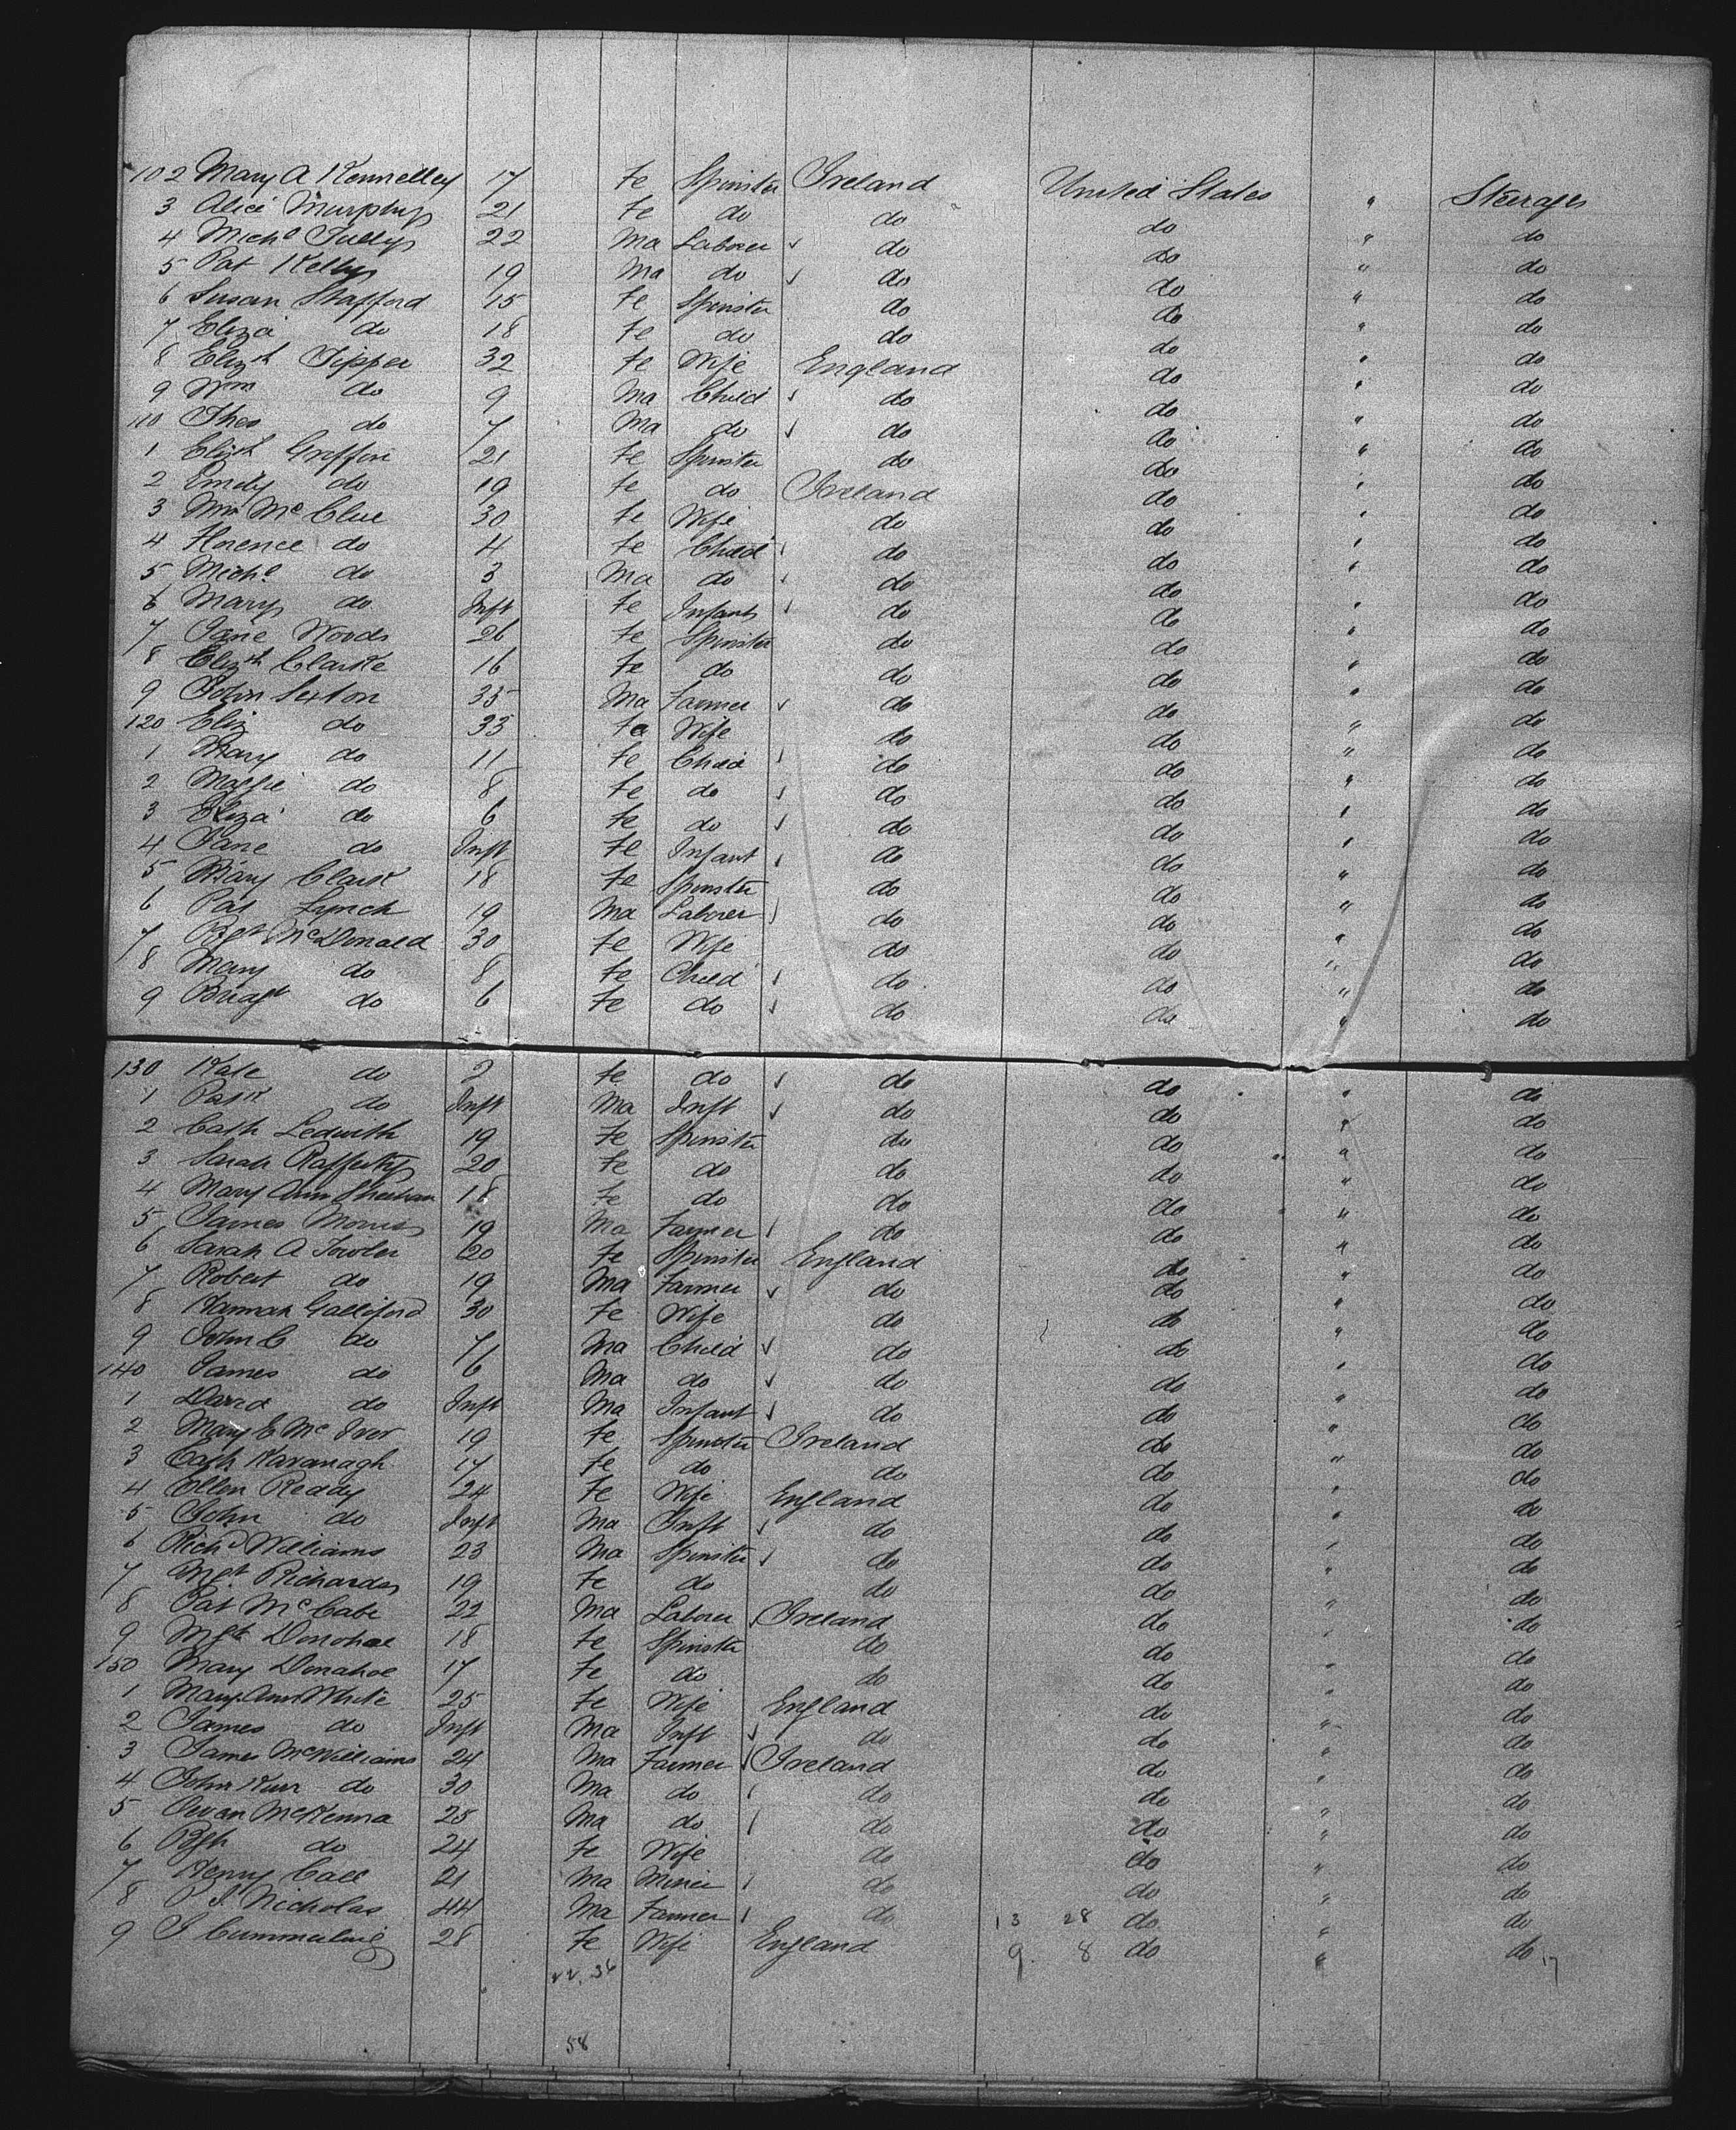 102 Mary A Kennelley 17 Fe Spinster Ireland United States " Steerage
3 Alice Murphy 21 Fe do do do " do
4 Michl Tully 22 Ma Laborer do do " do
5 Pat Kelly 19 Ma do do do " do
6 Susan Stafford 15 Fe Spinster do do " do
7 Eliza do 18 Fe do do do " do
8 Elizth Tipper 32 Fe Wife England do " do
9 Wm do 9 Ma Child do do " do
110 Thos do 7 Ma do do do " do
1 Elizth Griffin 21 Fe Spinster do do " do
2 Emily do 19 Fe do Ireland do " do
3 Mrs McClue 30 Fe Wife do do " do
4 Florence do 4 Fe Child do do " do
5 Michl do 3 Ma do do do " do
6 Mary do Inft Fe Infant do do " do
7 Jane Woods 26 Fe Spinster do do " do
8 Elizth Clarke 16 Fe do do do " do
9 John Sexton 35 Ma Farmer do do " do
120 Eliz do 33 Fe Wife do do " do
1 Mary do 11 Fe Child do do " do
2 Maggie do 8 Fe do do do " do
3 Eliza do 6 Fe do do do " do
4 Jane do Inft Fe Infant do do " do
5 Mary Clark 18 Fe Spinster do do " do
6 Pat Lynch 19 Ma Laborer do do " do
7 Bgt McDonald 30 Fe Wife do do " do
8 Mary do 8 Fe Child do do " do
9 Bridgt do 6 Fe do do do " do
130 Kate do 2 Fe do do do " do
1 Patk do Inft Ma Inft do do " do
2 Cath Ledwith 19 Fe Spinster do do " do
3 Sarah Rafferty 20 Fe do do do " do
4 Mary Ann Sheehan 18 Fe do do do " do
5 James Morris 19 Ma Farmer do do " do
6 Sarah A Fowler 20 Fe Spinster England do " do
7 Robert do 19 Ma Farmer do do " do
8 Hannah Galliford 30 Fe Wife do do " do
9 John C do 7 Ma Child do do " do
140 James do 6 Ma do do do " do
1 David do Inft Ma Infant do do " do
2 Mary E McIver 19 Fe Spinster Ireland do " do
3 Cath Kavanagh 17 Fe do do do " do
4 Ellen Reddy 24 Fe Wife England do " do
5 John do Inft Ma Inft do do " do
6 Richd Williams 23 Ma Spinster do do " do
7 Mgt Richards 19 Fe do do do " do
8 Pat McCabe 22 Ma Laborer Ireland do " do
9 Mgt Donohoe 18 Fe Spinster do do " do
150 Mary Donahoe 17 Fe do do do " do
1 Mary Ann White 25 Fe Wife England do " do
2 James do Inft Ma Inft do do " do
3 James McWilliams 24 Ma Farmer Ireland do " do
4 John Kerr do 30 Ma do do do " do
5 Owen McKenna 25 Ma do do do " do
6 Bgt do 24 Fe Wife do do " do
7 Henry Call 21 Ma Miner do do " do
8 P J Nicholas 44 Ma Farmer do 13 28 do " do
9 J 28 Fe Wife England 9 8 do " do 17
22 36
58